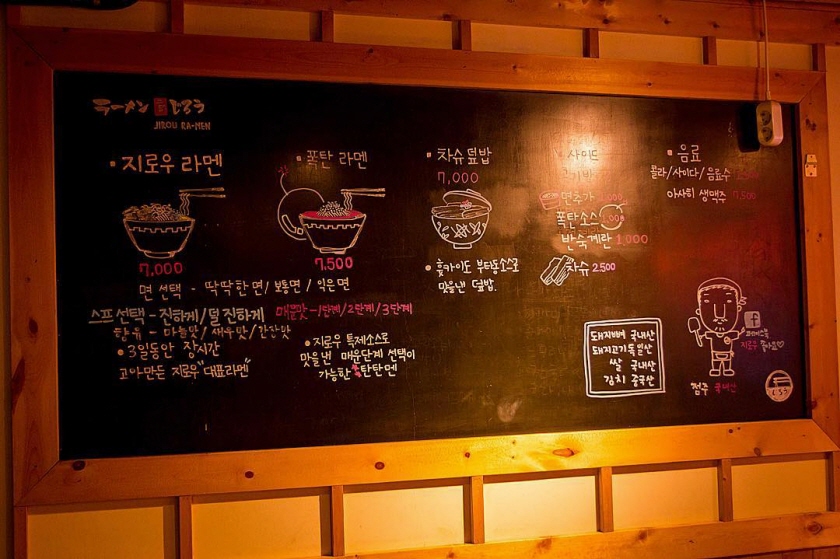 ラーメン じろう
JIROU RA-MEN
· 지로우 라멘
7,000
· 폭탄 라멘
7,500
면 선택 - 딱딱한면/보통면/익은면
스프선택 - 진하게/덜 진하게 매운맛 - 1단계/2단계/3단계
향유 - 마늘맛/새우맛/간간맛
· 3일동안 장시간
고아만든 지로우 "대표라멘"
· 지로우 특제소스로
맛을낸 매운단계 선택이
가능한 탄탄멘
· 차슈덮밥
7,000
· 홋카이도 부타동소스로
맛을낸 덮밥.
· 사이드
면추가 1,000
폭탄소스 1,000
반숙계란 1,000
차슈 2,500
· 음료
콜라/사이다/음료수
아사히 생맥주 7,500
돼지뼈 국내산
돼지고기 독일산
쌀 국내산
김치 중국산
점주 국내산
f
페이스북
지로우 좋아요
じろう